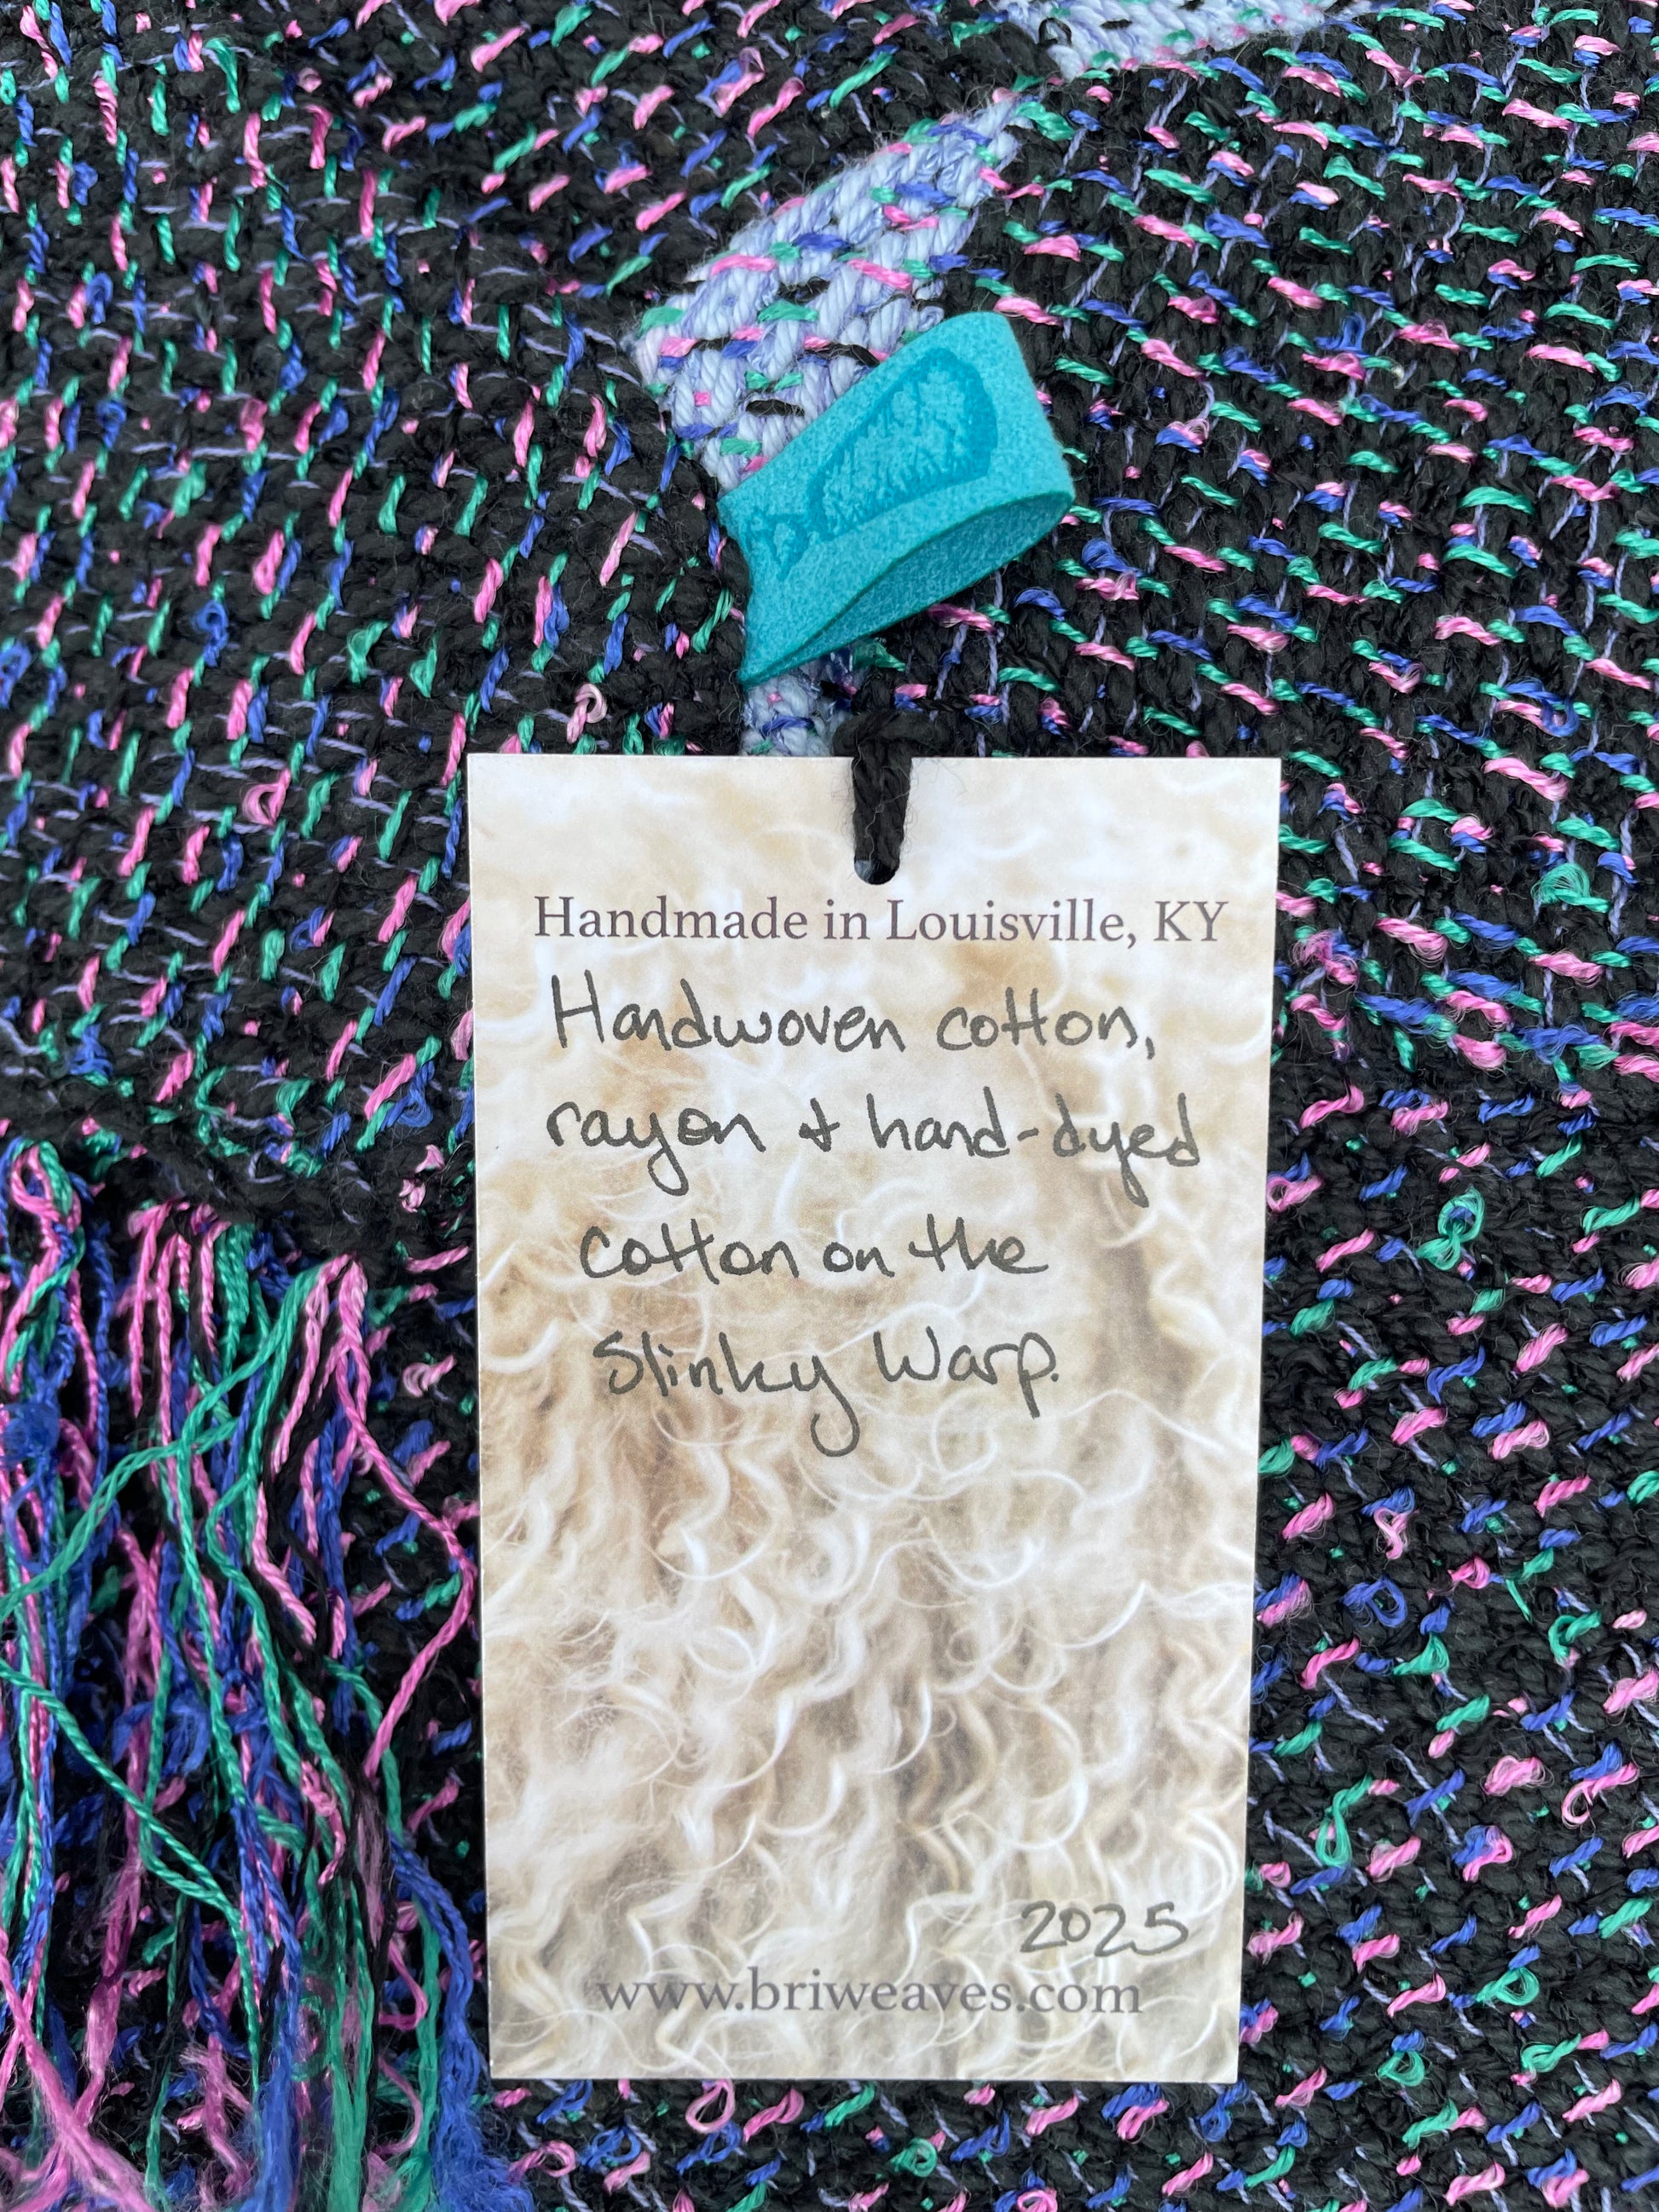 Handmade in Louisville, KY
Handwoven cotton,
rayon & hand-dyed
cotton on the
Slinky Warp.
2025
www.briweaves.com